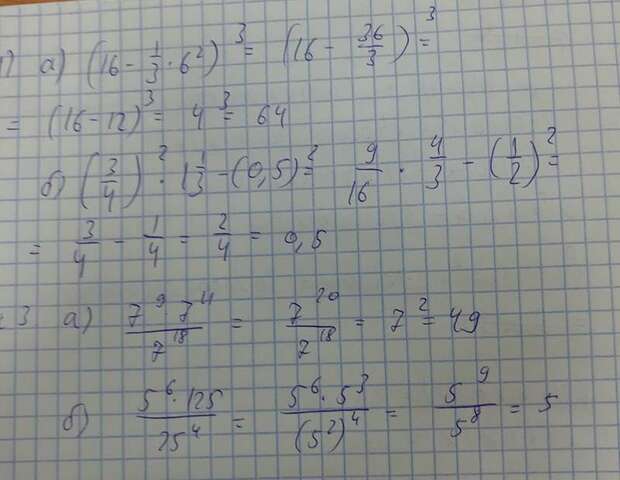 1) а) (16 - 1/3 · 6²)³ = (16 - 36/3)³ =
= (16 - 12)³ = 4³ = 64
б) (3/4)² · 1 1/3 - (0,5)² = 9/16 · 4/3 - (1/2)² =
= 3/4 - 1/4 = 2/4 = 0,5
3 а) 7⁹ 7⁴ / 7¹⁸ = 7²⁰ / 7¹⁸ = 7² = 49
б) 5⁶ · 125 / 25⁴ = 5⁶ · 5³ / (5²)⁴ = 5⁹ / 5⁸ = 5